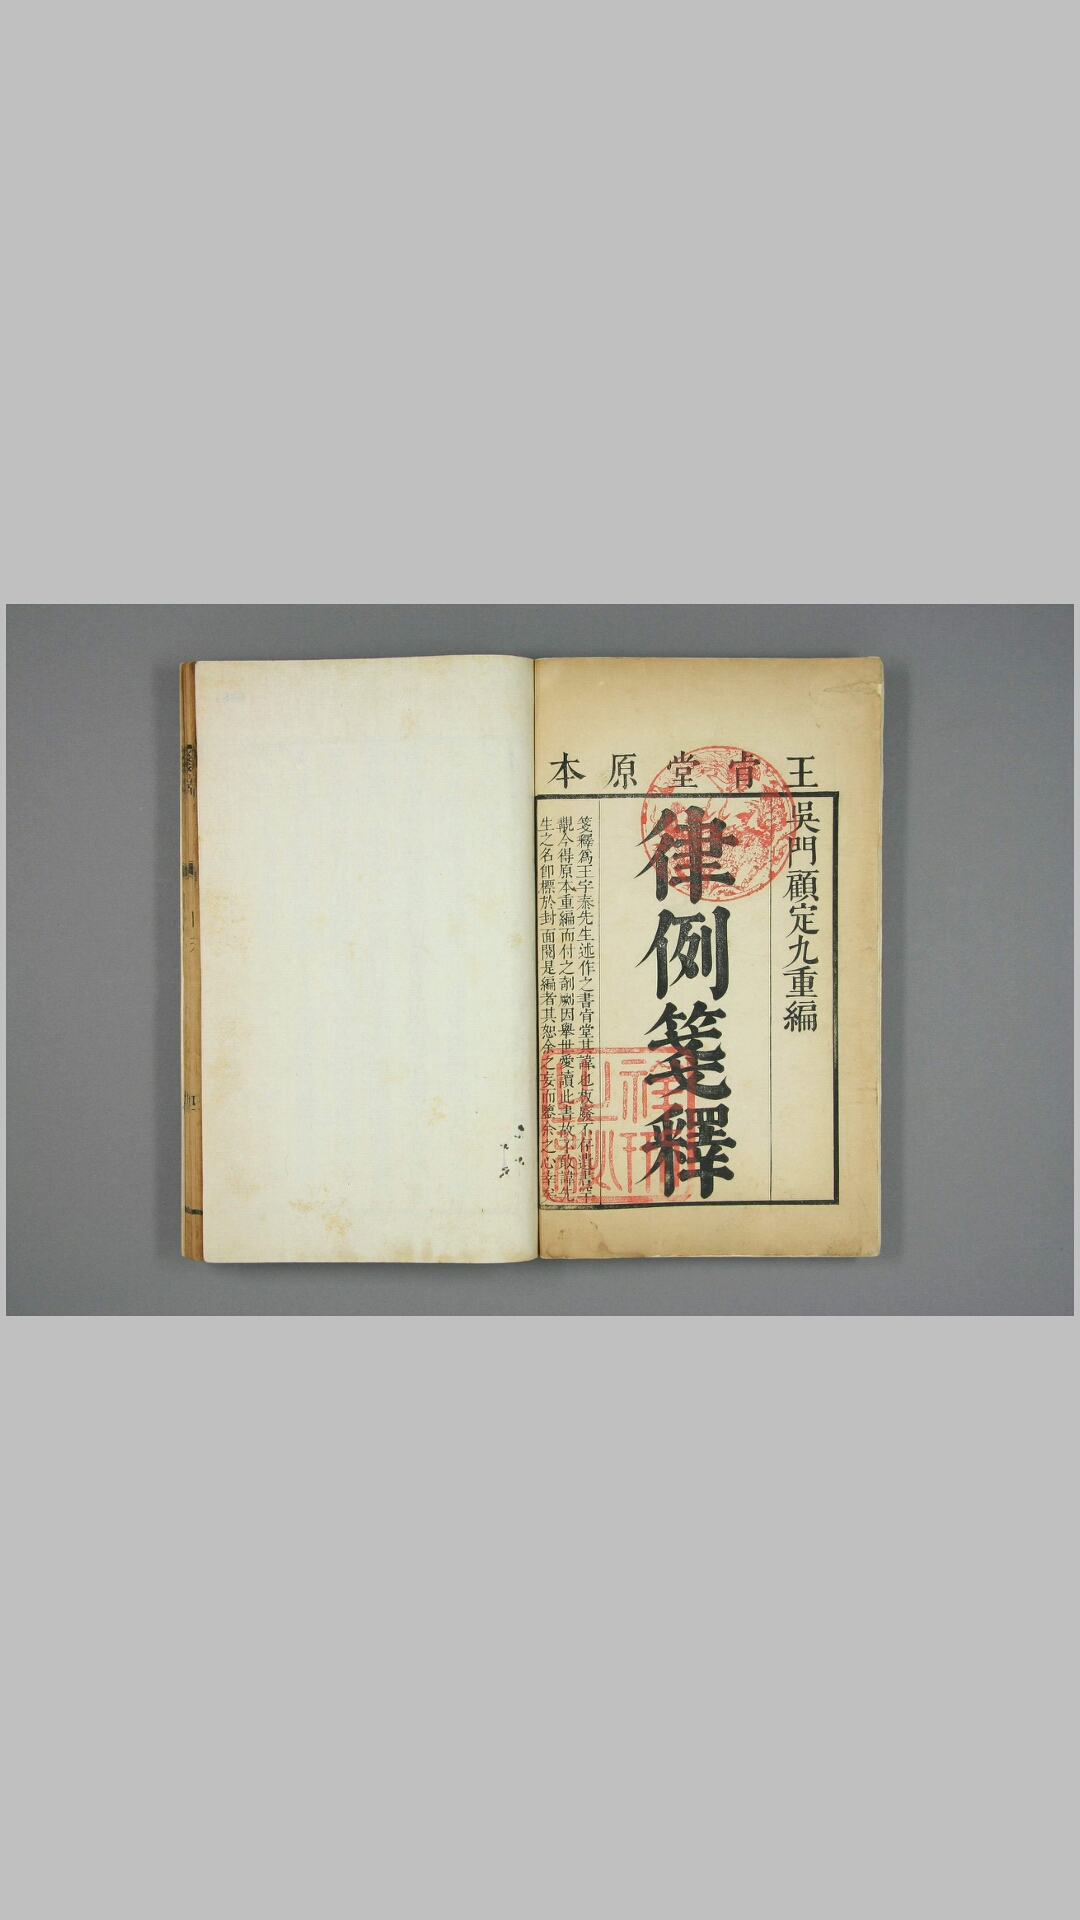 王肯堂原本
吳門顧定九重編
律例箋釋
箋釋爲王宇泰先生述作之書肯堂其諱也板廢不存遺書罕
覯今得原本重編而付之剞劂因舉世愛讀此書故不敢諱先
生之名卽標於封面閱是編者其恕余之妄而鑒余之心幸矣